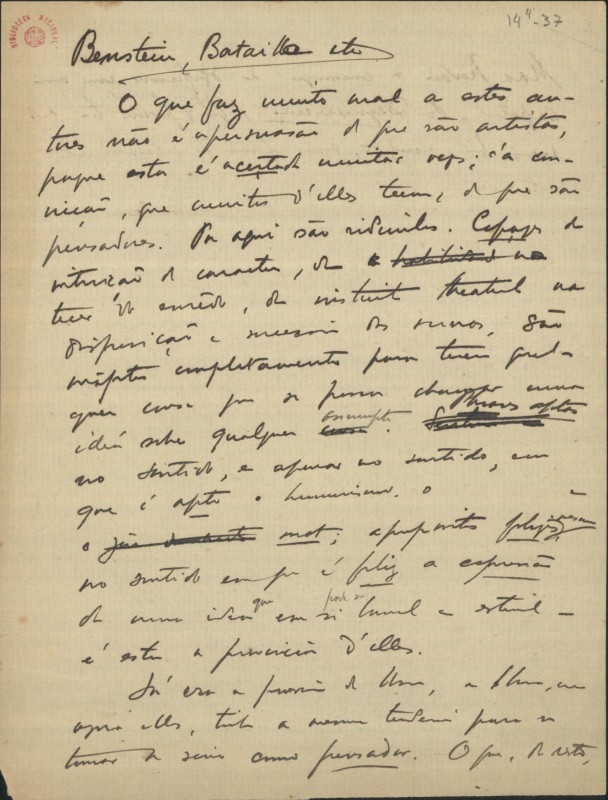 BIBLIOTECA NACIONAL
14⁴-37
Bernstein, Bataille etc
O que faz muito mal a estes au-
tores não é a persuasão de que são artistas,
porque esta é acertada muitas vezes; é a con-
vicção, que muitos d'elles teem, de que são
pensadores. Por aqui são ridiculos. Capazes de
intuição de caracter, de
tecer do enrêdo, de instincto theatral na
disposição e successão das scenas, são
ineptos completamente para terem qual-
quer cousa que se possa chamar uma
idéa sobre qualquer assumpto.
no sentido, e apenas no sentido, em
que é apto o humorismo. o
o mot; a proposito feliz
no sentido em que é feliz a expressão
de uma idéa que em si pode ser banal e esteril –
é esta a provincia d'elles.
Já era a de Dumas, e Dumas, como
agora elles, tinha a mesma tendencia para se
tomar a serio como pensador. O que, de resto,